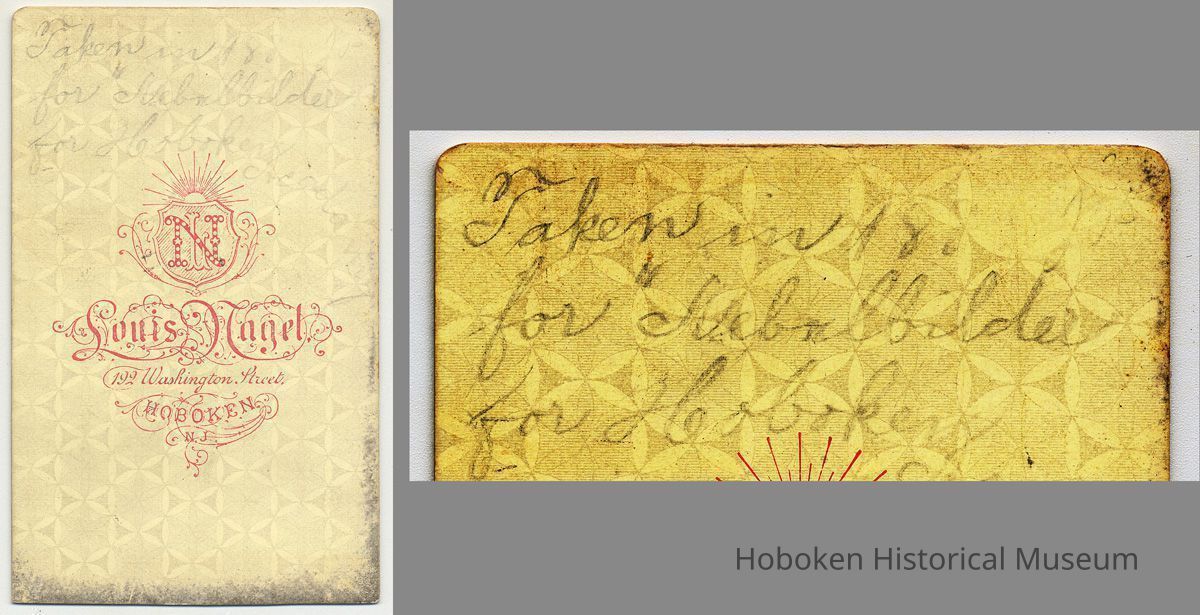 Taken in 18
for "Nebelbilder
for Hoboken
N
Louis Nagel.
192 Washington Street,
HOBOKEN
N.J.
Taken in 18.
for "Nebelbilder
for Hoboken
Hoboken Historical Museum